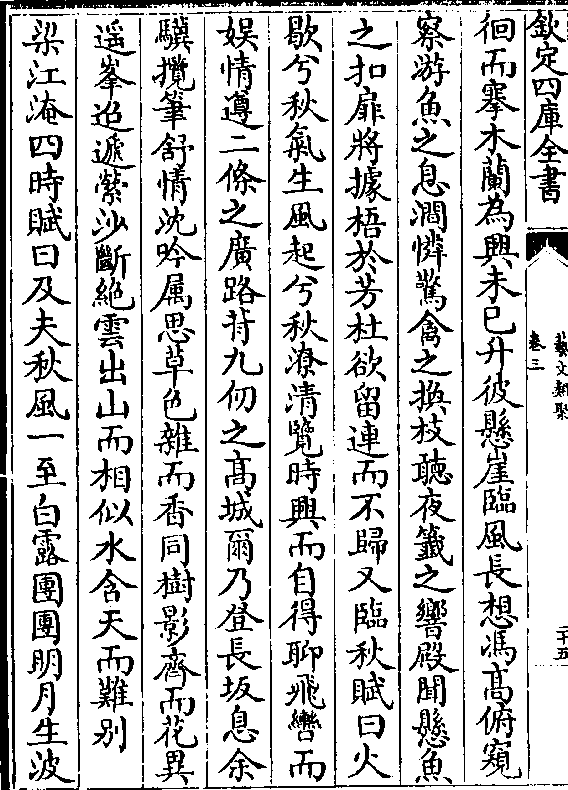 欽定四庫全書
藝文類聚
卷三
二十五
徊而搴木蘭為興未已升彼懸崖臨風長想馮髙俯窺
察游魚之息澗憐驚禽之換枝聽夜籤之響殿聞懸魚
之扣扉將據梧於芳杜欲留連而不歸又臨秋賦曰火
歇兮秋氣生風起兮秋潦清覽時興而自得聊飛轡而
娯情遵二條之廣路背九仞之髙城爾乃登長坂息余
驥攬筆舒情沈吟属思草色雜而香同樹影齊而花異
遥峯迢遞縈沙斷絶雲出山而相似水含天而難别
梁江淹四時賦曰及夫秋風一至白露團團明月生波